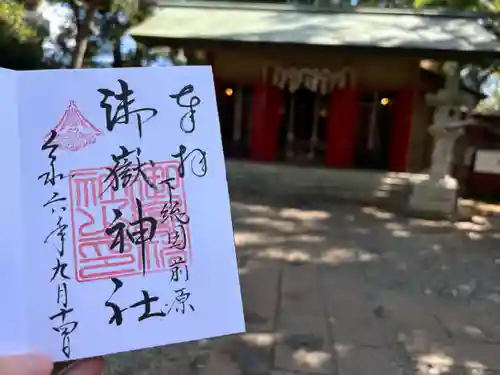 奉拝
下総國前原
御嶽神社
令和六年九月十四日